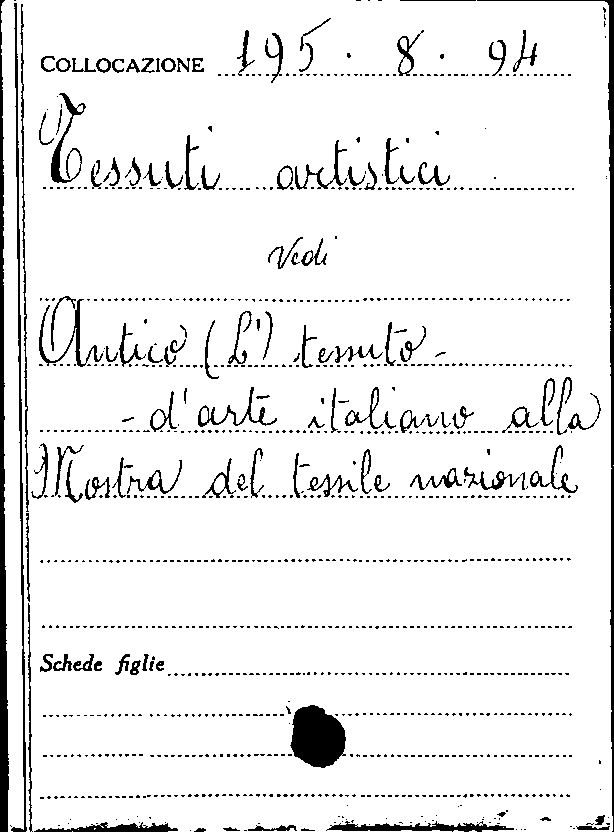 COLLOCAZIONE 195. 8. 94
Tessuti artistici
Vedi
Antico (L') tessuto -
- d'arte italiano alla
Mostra del tessile nazionale
Schede figlie